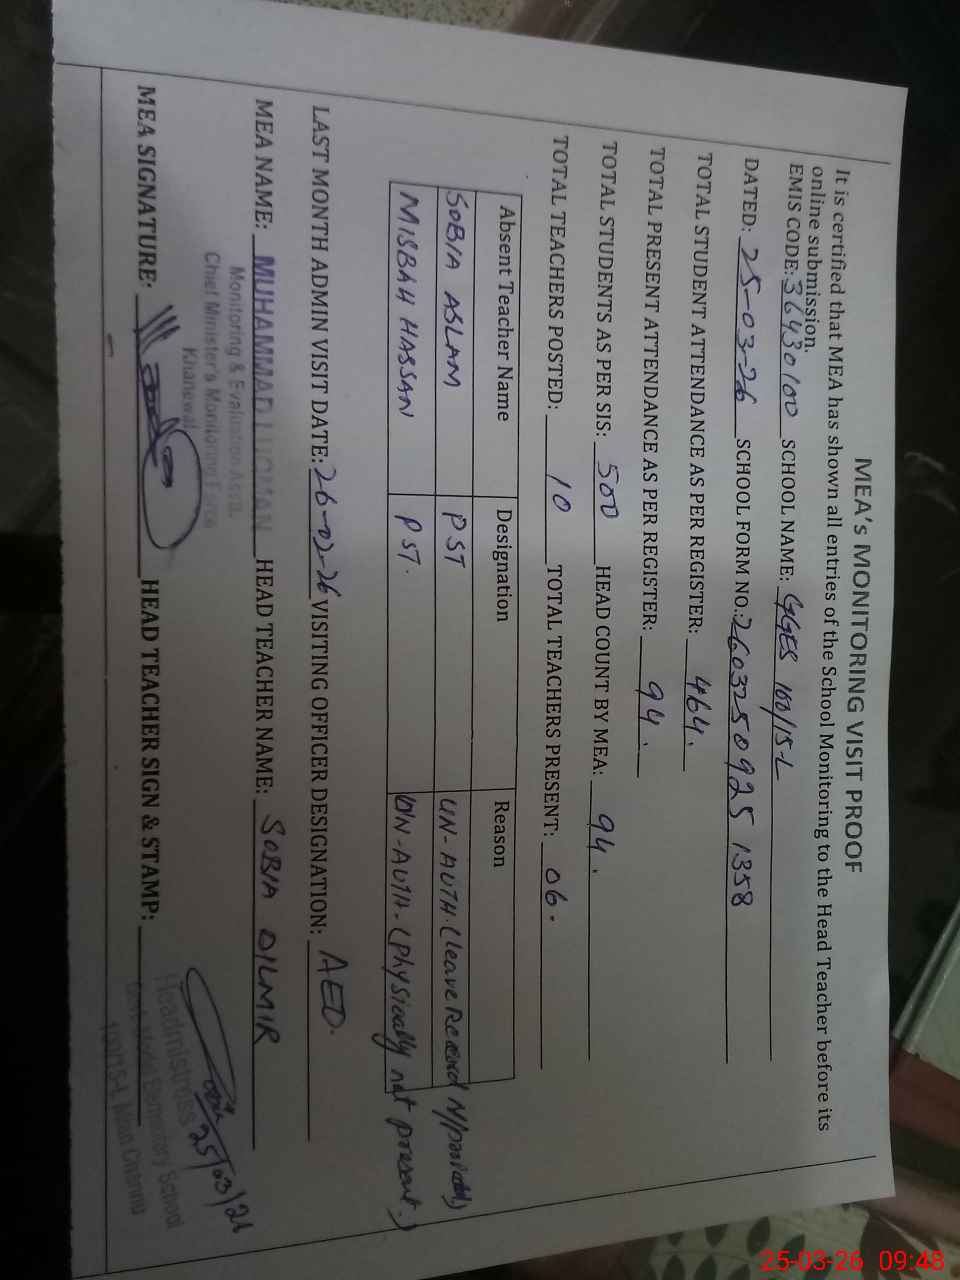 MEA's MONITORING VISIT PROOF
It is certified that MEA has shown all entries of the School Monitoring to the Head Teacher before its
online submission.
EMIS CODE: 36430100 SCHOOL NAME: GGES 100/15-L
DATED: 25-03-26 SCHOOL FORM NO. 26032509251358
TOTAL STUDENT ATTENDANCE AS PER REGISTER: 464.
TOTAL PRESENT ATTENDANCE AS PER REGISTER: 94.
TOTAL STUDENTS AS PER SIS: 500 HEAD COUNT BY MEA: 94.
TOTAL TEACHERS POSTED: 10 TOTAL TEACHERS PRESENT: 06.
Absent Teacher Name Designation Reason
SOBIA ASLAM PST UN-AUTH. (leave Record N/provided)
MISBAH HASSAN PST. UN-AUTH. (Physically not present.)
LAST MONTH ADMIN VISIT DATE: 26-02-26 VISITING OFFICER DESIGNATION: AEO.
MEA NAME: MUHAMMAD LUQMAN HEAD TEACHER NAME: SOBIA DILMIR
Monitoring & Evaluation Asstt.
Chief Minister's Monitoring Force
Khanewal
MEA SIGNATURE: HEAD TEACHER SIGN & STAMP:
25/03/26
Headmistress
Govt. Model Elementary School
100/15-L Mian Channu
25-03-26 09:48